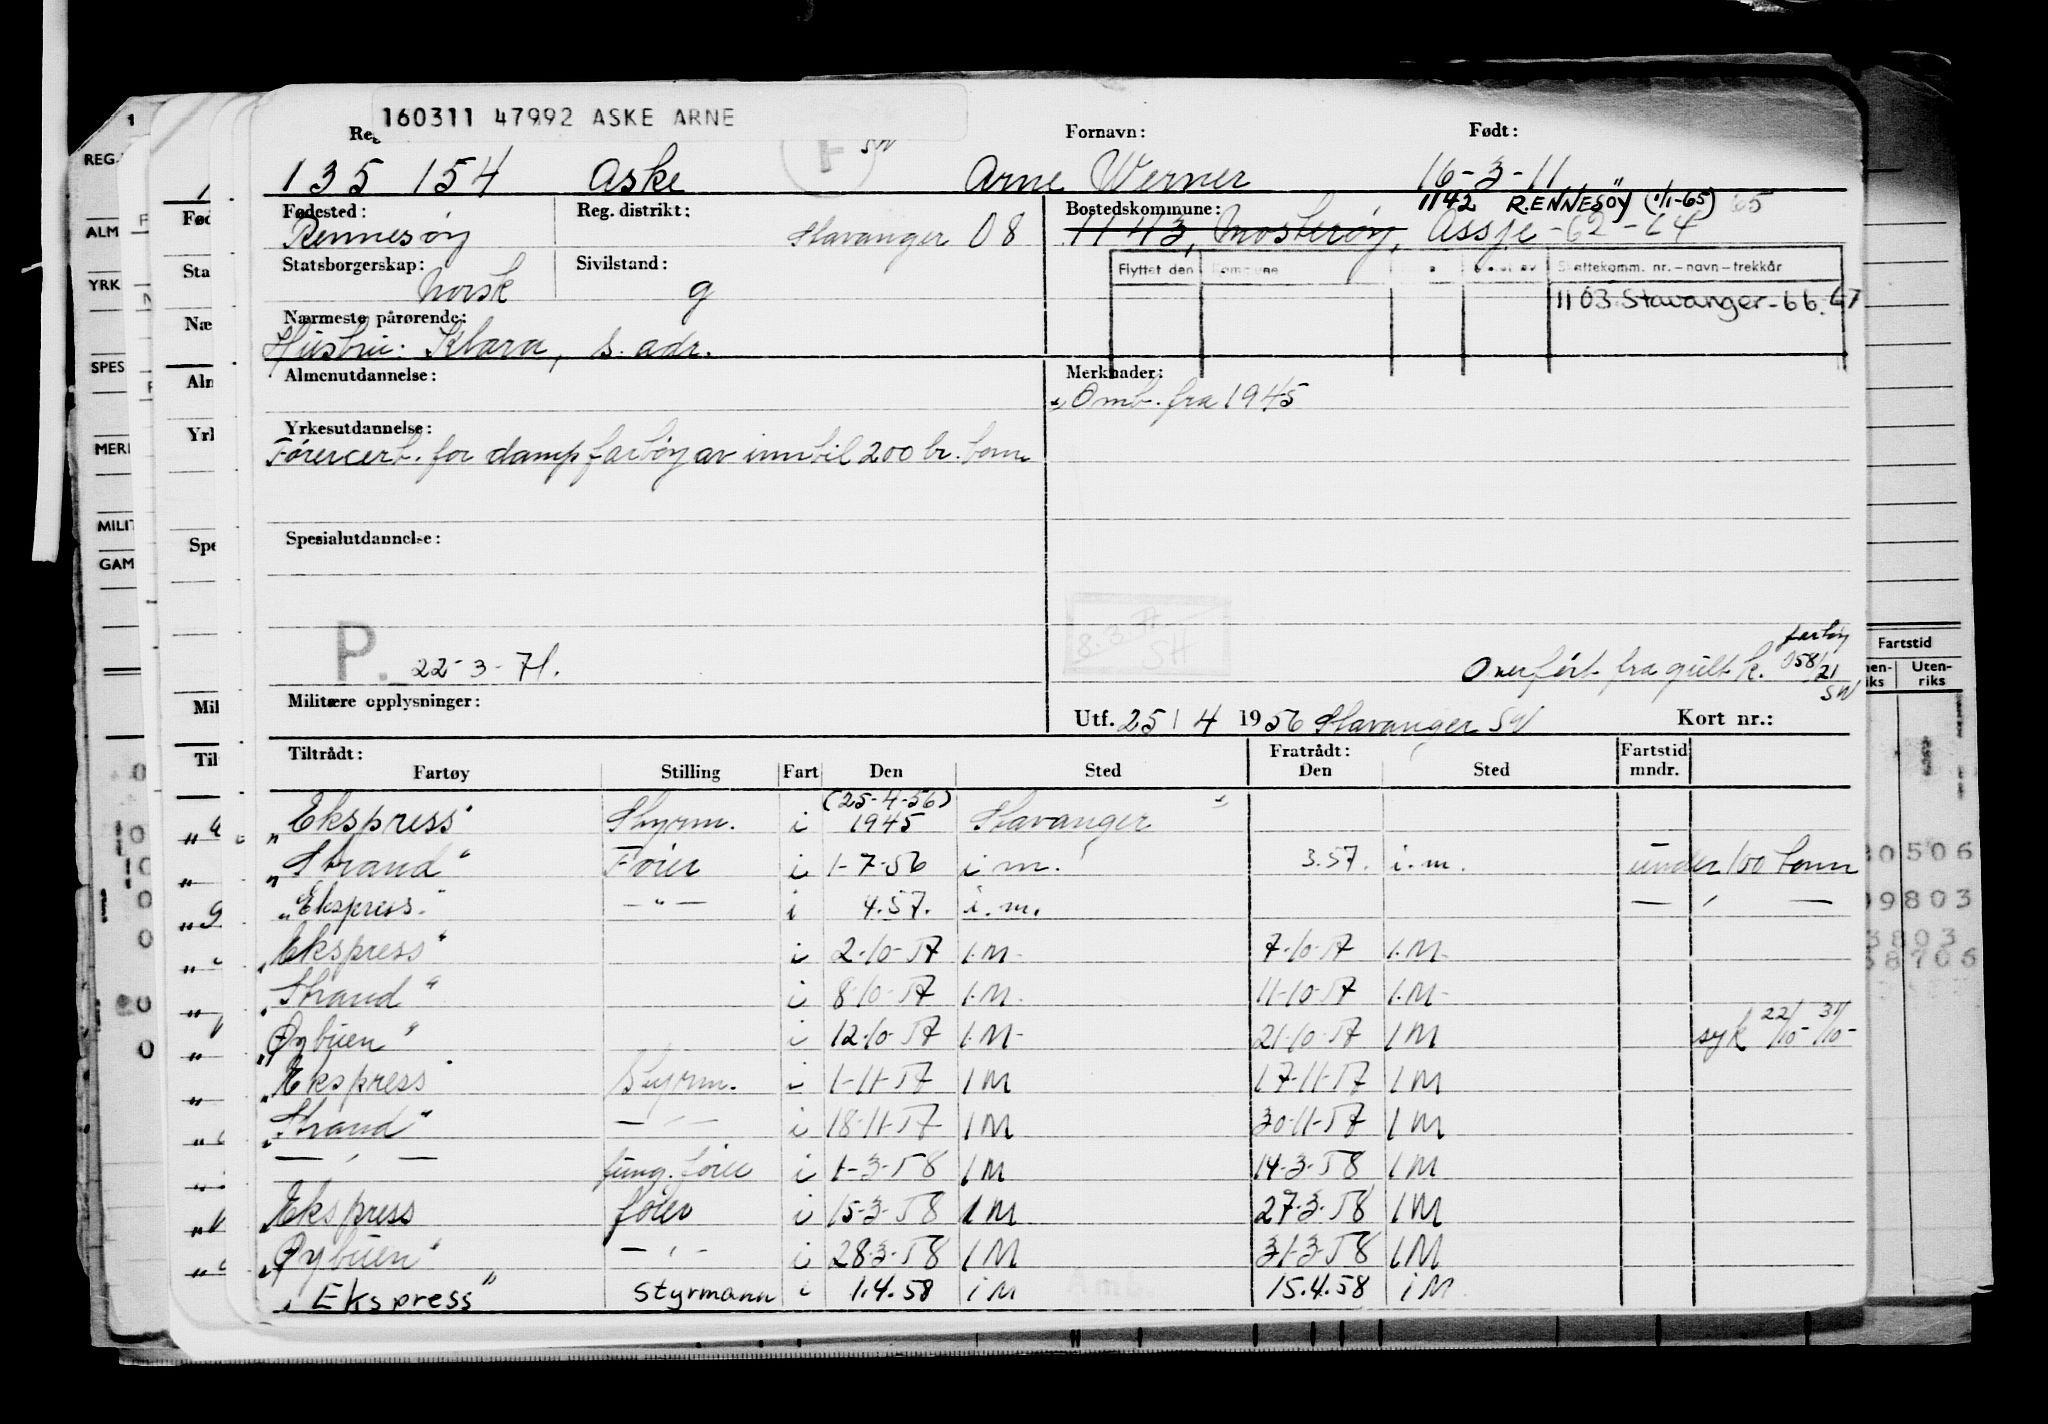 160311 47992 ASKE ARNE
Reg Fornavn: Født:
135 154 Aske F SW Arne Werner 16-3-11
Fødested: Reg. distrikt: Bostedskommune: 1142 RENNESØY (1/1-65) 65
Rennesøy Stavanger 08 1143, Mosterøy, Assje -62-64
Statsborgerskap: Sivilstand: Flyttet den Kommune Skattekomm. nr. – navn – trekkår
Norsk g 1103 Stavanger-66.67
Nærmeste pårørende:
Hustru: Klara, s. adr.
Almenutdannelse: Merknader:
Omb. fra 1945
Yrkesutdannelse:
Førercert. for dampfartøy av inntil 200 br. tonn
Spesialutdannelse:
8.3.71 SH
P. 22-3-71. Overført fra gult k. fartøy 058/21 SW
Militære opplysninger: Utf. 25/4 1956 Stavanger SW Kort nr.:
Tiltrådt: Fratrådt: Fartstid
Fartøy Stilling Fart Den Sted Den Sted mndr.
(25-4-56)
"Ekspress" Styrm. i 1945 Stavanger
"Strand" Fører i 1-7-56 i m. 3.57. i.m. under 100 tonn
"Ekspress" — " — i 4.57. i.m. — ' —
"Ekspress" i 2-10-57 I.M. 7-10-57 I.M.
"Strand" i 8-10-57 I.M. 11-10-57 I.M.
"Øybuen" i 12-10-57 I.M. 21-10-57 I M syk 22/10- 31/10-
"Ekspress" Styrm. i 1-11-57 I M 17-11-57 I M
"Strand" — " — i 18-11-57 I M 30-11-57 I M
— " — fung. fører i 1-3-58 I M 14-3-58 I M
Ekspress fører i 15-3-58 I M 27-3-58 I M
"Øybuen" — " — i 28-3-58 I M 31-3-58 I M
"Ekspress" Styrmann i 1.4.58 i M 15.4.58 i M
REG.
ALM
YRK
SPES
MERI
MILIT
GAM
Fød
Sta
Næ
Aln
Yrk
Spe
Mil
Til
Fartstid
Uten-
riks